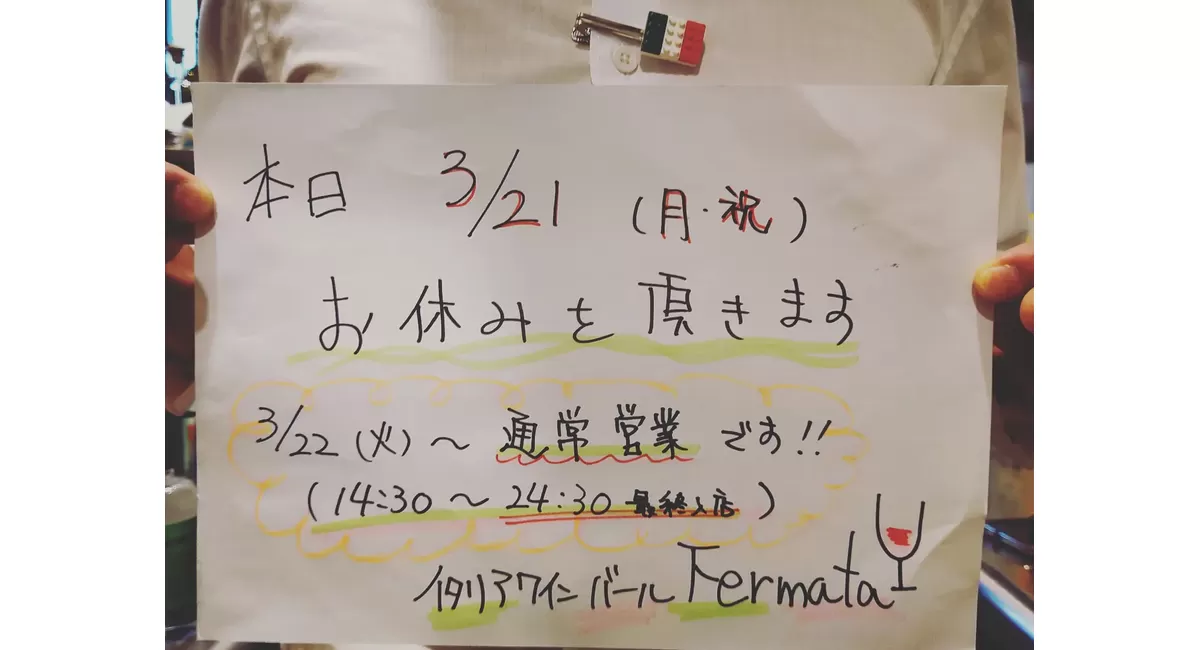 本日 3/21 (月・祝)
お休みを頂きます
3/22 (火) ~ 通常営業です!!
(14:30 ~ 24:30 最終入店)
イタリアワインバール Fermata